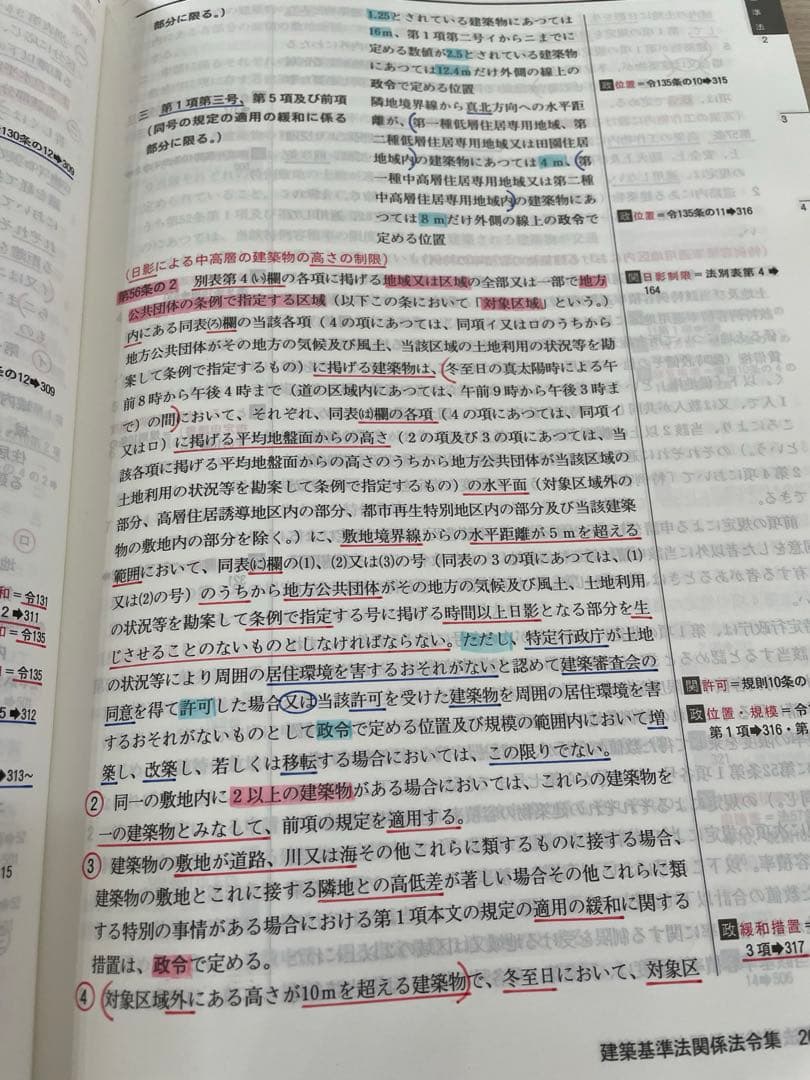 部分に限る。)
1.25とされている建築物にあつては
16m、第1項第二号イからニまでに
定める数値が2.5とされている建築物
にあつては12.4mだけ外側の線上の
政令で定める位置
三 第1項第三号、第5項及び前項
(同号の規定の適用の緩和に係る
部分に限る。)
隣地境界線から真北方向への水平距
離が、(第一種低層住居専用地域、第
二種低層住居専用地域又は田園住居
地域内)の建築物にあつては4m、(第
一種中高層住居専用地域又は第二種
中高層住居専用地域内)の建築物にあ
つては8mだけ外側の線上の政令で
定める位置
(日影による中高層の建築物の高さの制限)
第56条の2 別表第4(い)欄の各項に掲げる地域又は区域の全部又は一部で地方
公共団体の条例で指定する区域(以下この条において「対象区域」という。)
内にある同表(ろ)欄の当該各項(4の項にあつては、同項イ又はロのうちから
地方公共団体がその地方の気候及び風土、当該区域の土地利用の状況等を勘
案して条例で指定するもの)に掲げる建築物は、(冬至日の真太陽時による午
前8時から午後4時まで(道の区域内にあつては、午前9時から午後3時ま
で)の間)において、それぞれ、同表(は)欄の各項(4の項にあつては、同項イ
又はロ)に掲げる平均地盤面からの高さ(2の項及び3の項にあつては、当
該各項に掲げる平均地盤面からの高さのうちから地方公共団体が当該区域の
土地利用の状況等を勘案して条例で指定するもの)の水平面(対象区域外の
部分、高層住居誘導地区内の部分、都市再生特別地区内の部分及び当該建築
物の敷地内の部分を除く。)に、敷地境界線からの水平距離が5mを超える
範囲において、同表(に)欄の(1)、(2)又は(3)の号(同表の3の項にあつては、(1)
又は(2)の号)のうちから地方公共団体がその地方の気候及び風土、土地利用
の状況等を勘案して条例で指定する号に掲げる時間以上日影となる部分を生
じさせることのないものとしなければならない。ただし、特定行政庁が土地
の状況等により周囲の居住環境を害するおそれがないと認めて建築審査会の
同意を得て許可した場合又は当該許可を受けた建築物を周囲の居住環境を害
するおそれがないものとして政令で定める位置及び規模の範囲内において増
築し、改築し、若しくは移転する場合においては、この限りでない。
② 同一の敷地内に2以上の建築物がある場合においては、これらの建築物を
一の建築物とみなして、前項の規定を適用する。
③ 建築物の敷地が道路、川又は海その他これらに類するものに接する場合、
建築物の敷地とこれに接する隣地との高低差が著しい場合その他これらに類
する特別の事情がある場合における第1項本文の規定の適用の緩和に関する
措置は、政令で定める。
④ (対象区域外にある高さが10mを超える建築物)で、冬至日において、対象区
政 位置=令135条の10➡315
政 位置=令135条の11➡316
関 日影制限=法別表第4➡
164
関 許可=規則10条の
政 位置・規模=令
第1項➡316・第
政 緩和措置=
3項➡317
建築基準法関係法令集
準
法
2
3
4
130条の12➡309
の12➡309
和=令131
2➡311
和=令135
=令135
5➡312
➡313~
15